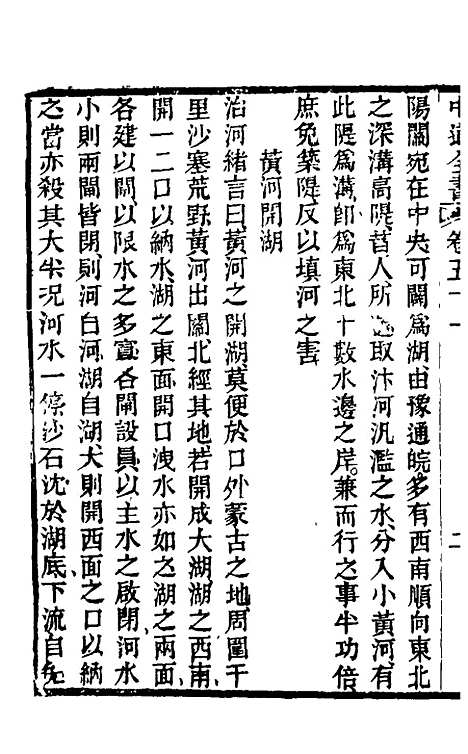 卷五十一 二
陽關宛在中央可闢爲湖由豫通皖多有西南順向東北
之深溝高隄昔人所取汴河汎濫之水分入小黃河有
此隄爲溝卽爲東北十數水邊之岸。兼而行之事半功倍
庶免築隄反以填河之害
黃河開湖
治河緒言曰黃河之開湖莫便於口外蒙古之地周圍千
里沙塞荒野黃河出關北經其地若開成大湖湖之西南
開一二口以納水湖之東面開口洩水亦如之湖之兩面
各建以閘以限水之多寡各閘設員以主水之啟閉河水
小則兩閘皆閉則河自河湖自湖大則開西面之口以納
之當亦殺其大半况河水一停沙石沈於湖底下流自